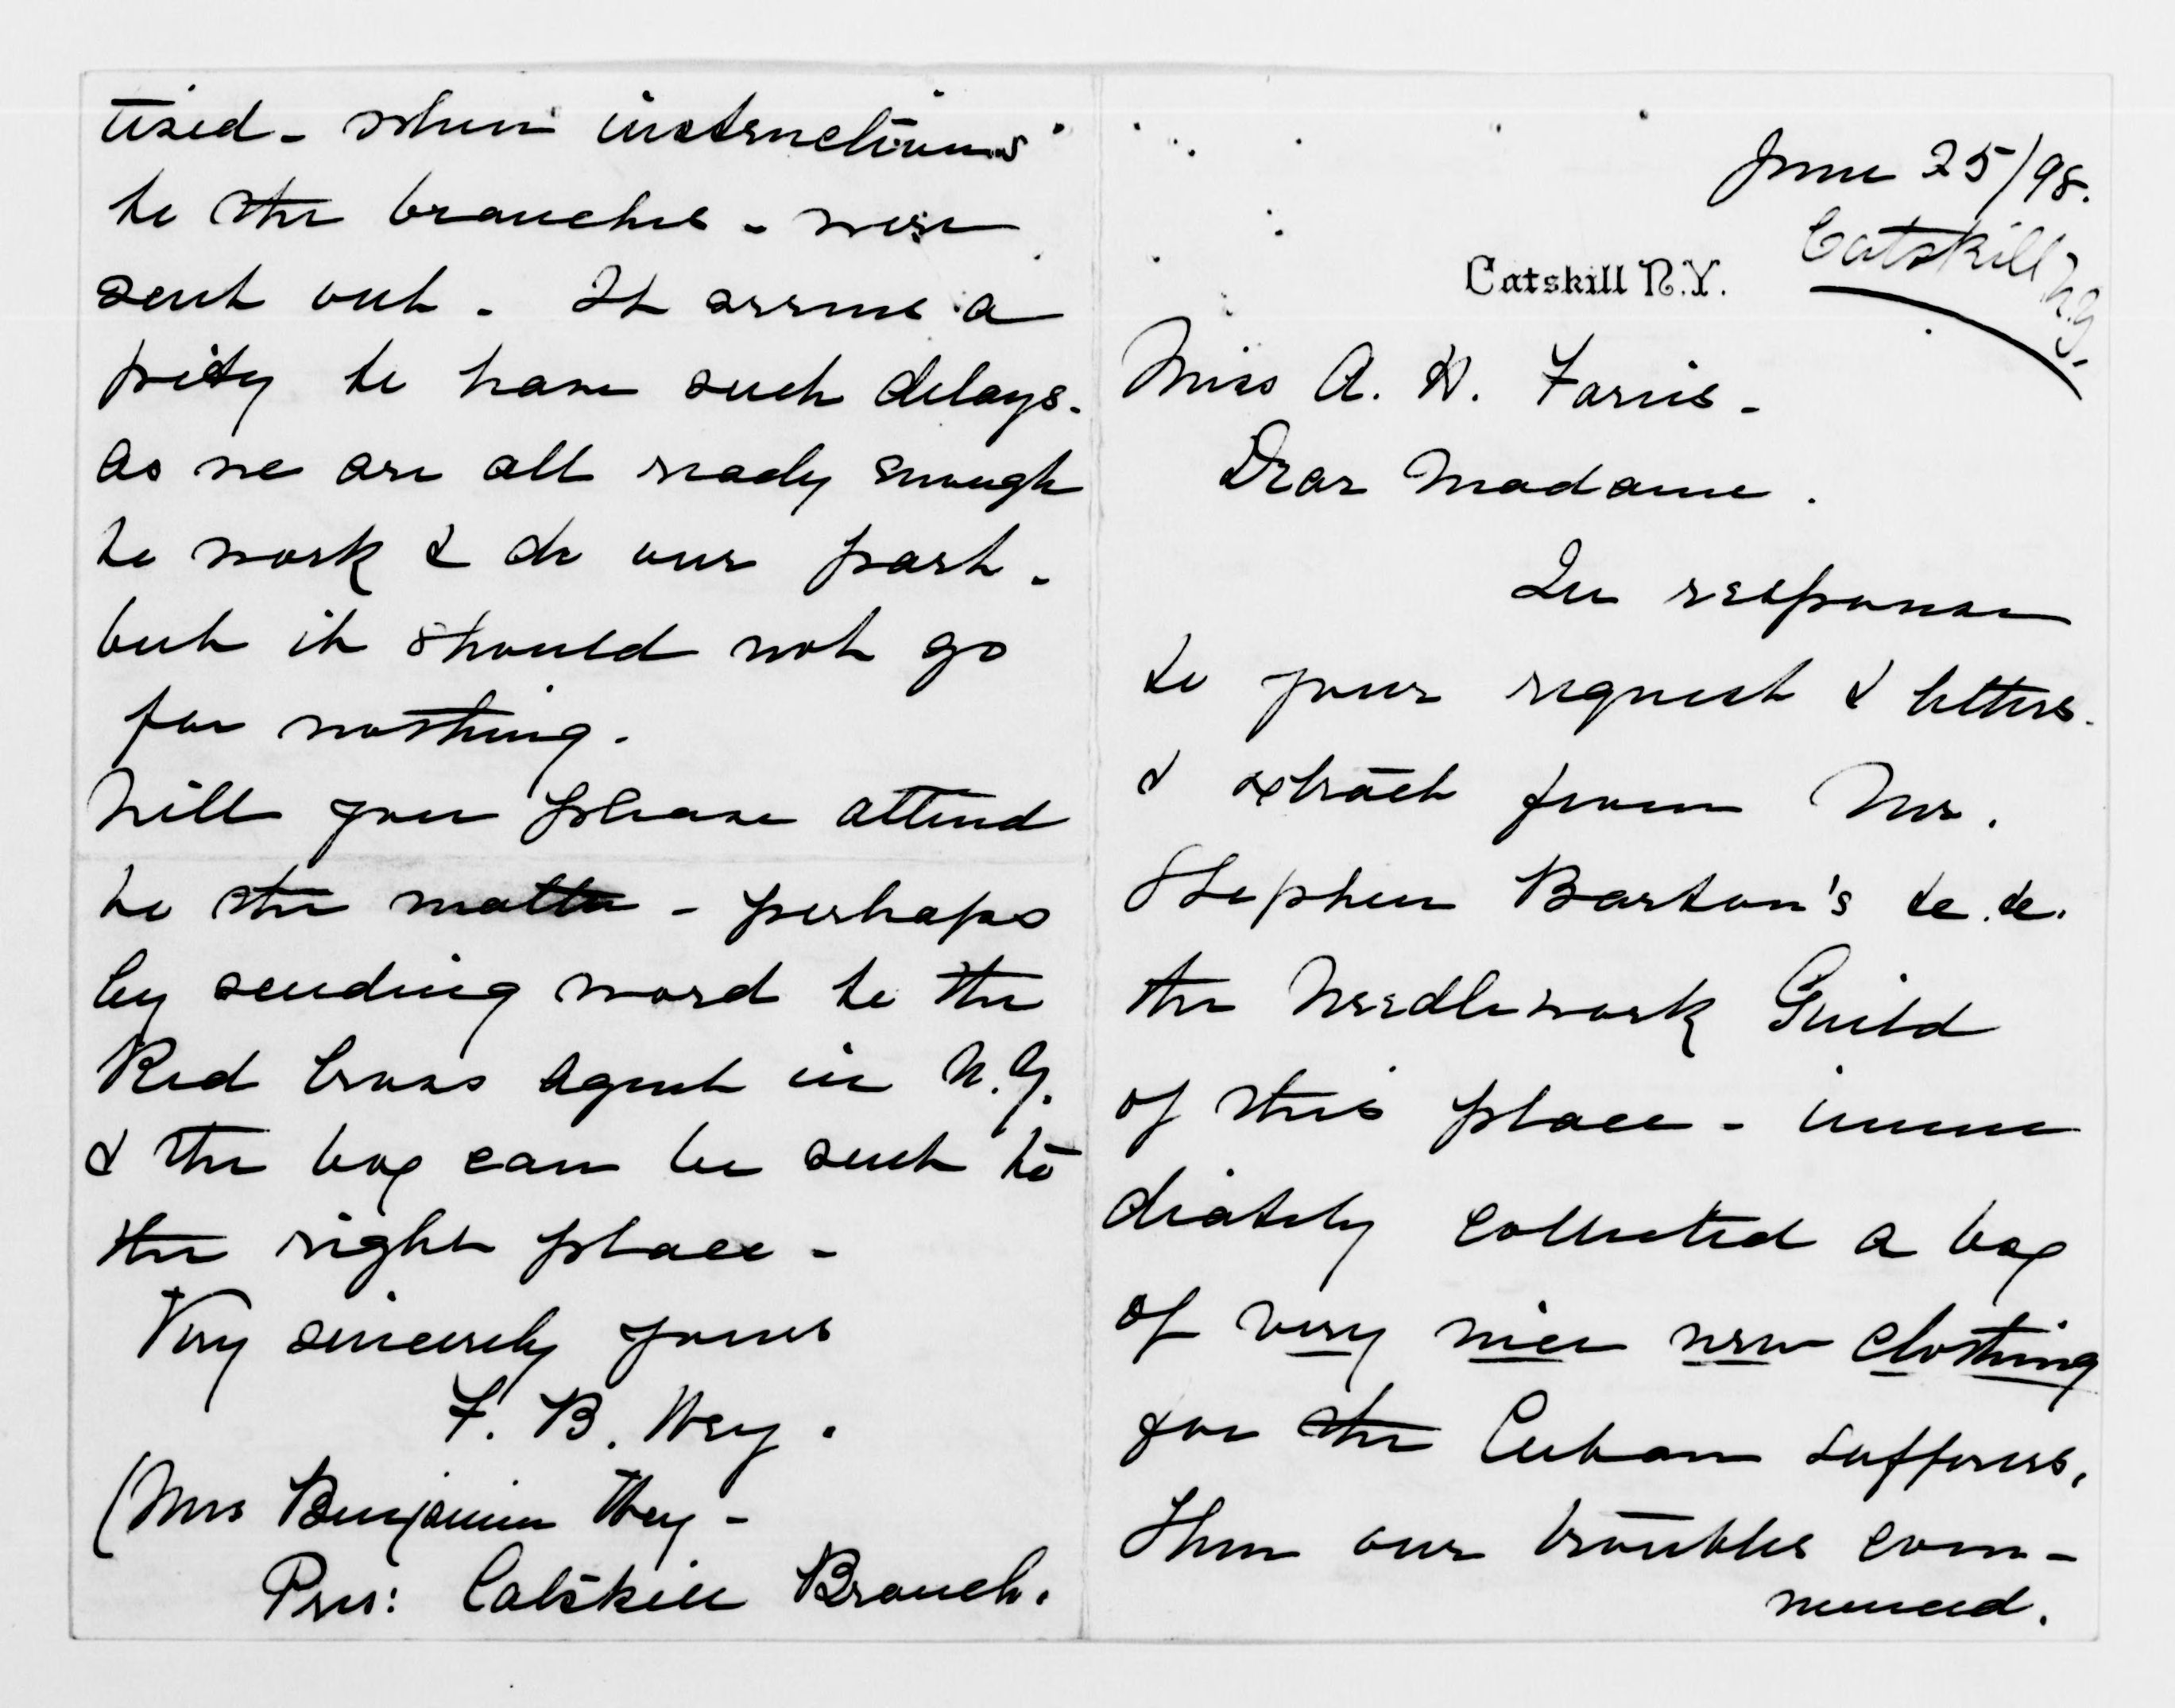 June 25/98.
Catskill N.Y.
Catskill N.Y.
Miss A. H. Farris -
Dear Madame.
In response
to your request & letters.
& extract from Mr.
Stephen Barton's to. to.
the Needlework Guild
of this place - imme
diately collected a box
of very nice new clothing
for the Cuban sufferers.
Then our troubles com-
menced.
tised - when instructions
to the branches - were
sent out. It seems a
pity to have such delays.
as we are all ready enough
to work & do our part -
but it should not go
for nothing.
Will you please attend
to the matter - perhaps
by sending word to the
Red Cross Agent in N.Y.
& the box can be sent to
the right place -
Very sincerely yours
F. B. Wey.
(Mrs Benjamin Wey -
Pres: Catskill Branch.